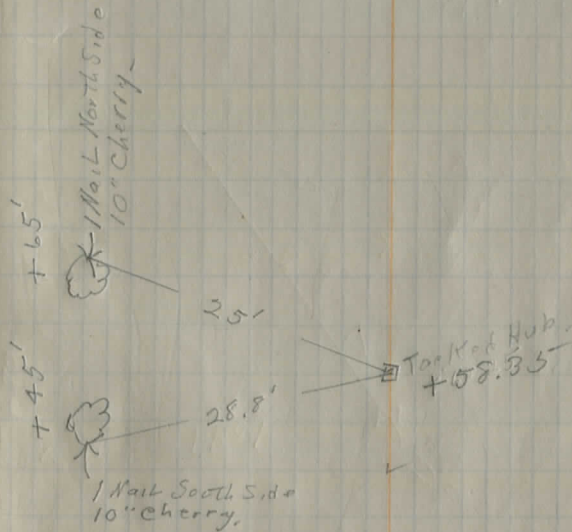 1 Nail North Side
10" Cherry
+65'
25'
Tacked Hub.
+58.35
+45'
28.8'
1 Nail South Side
10" Cherry.